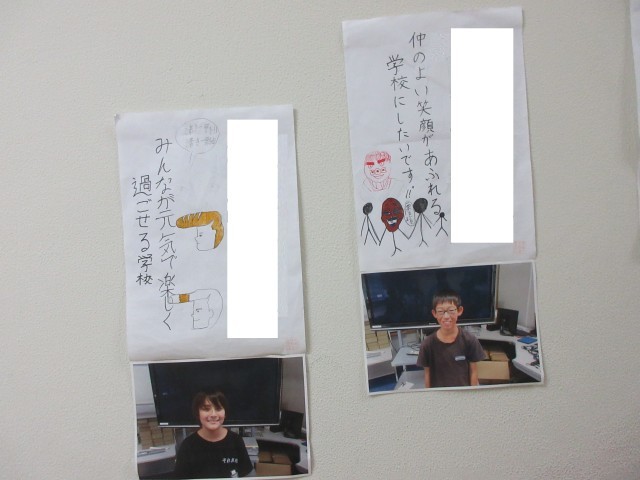 仲のよい笑顔があふれる
学校にしたいです!!
みんなが元気で楽しく
過ごせる学校